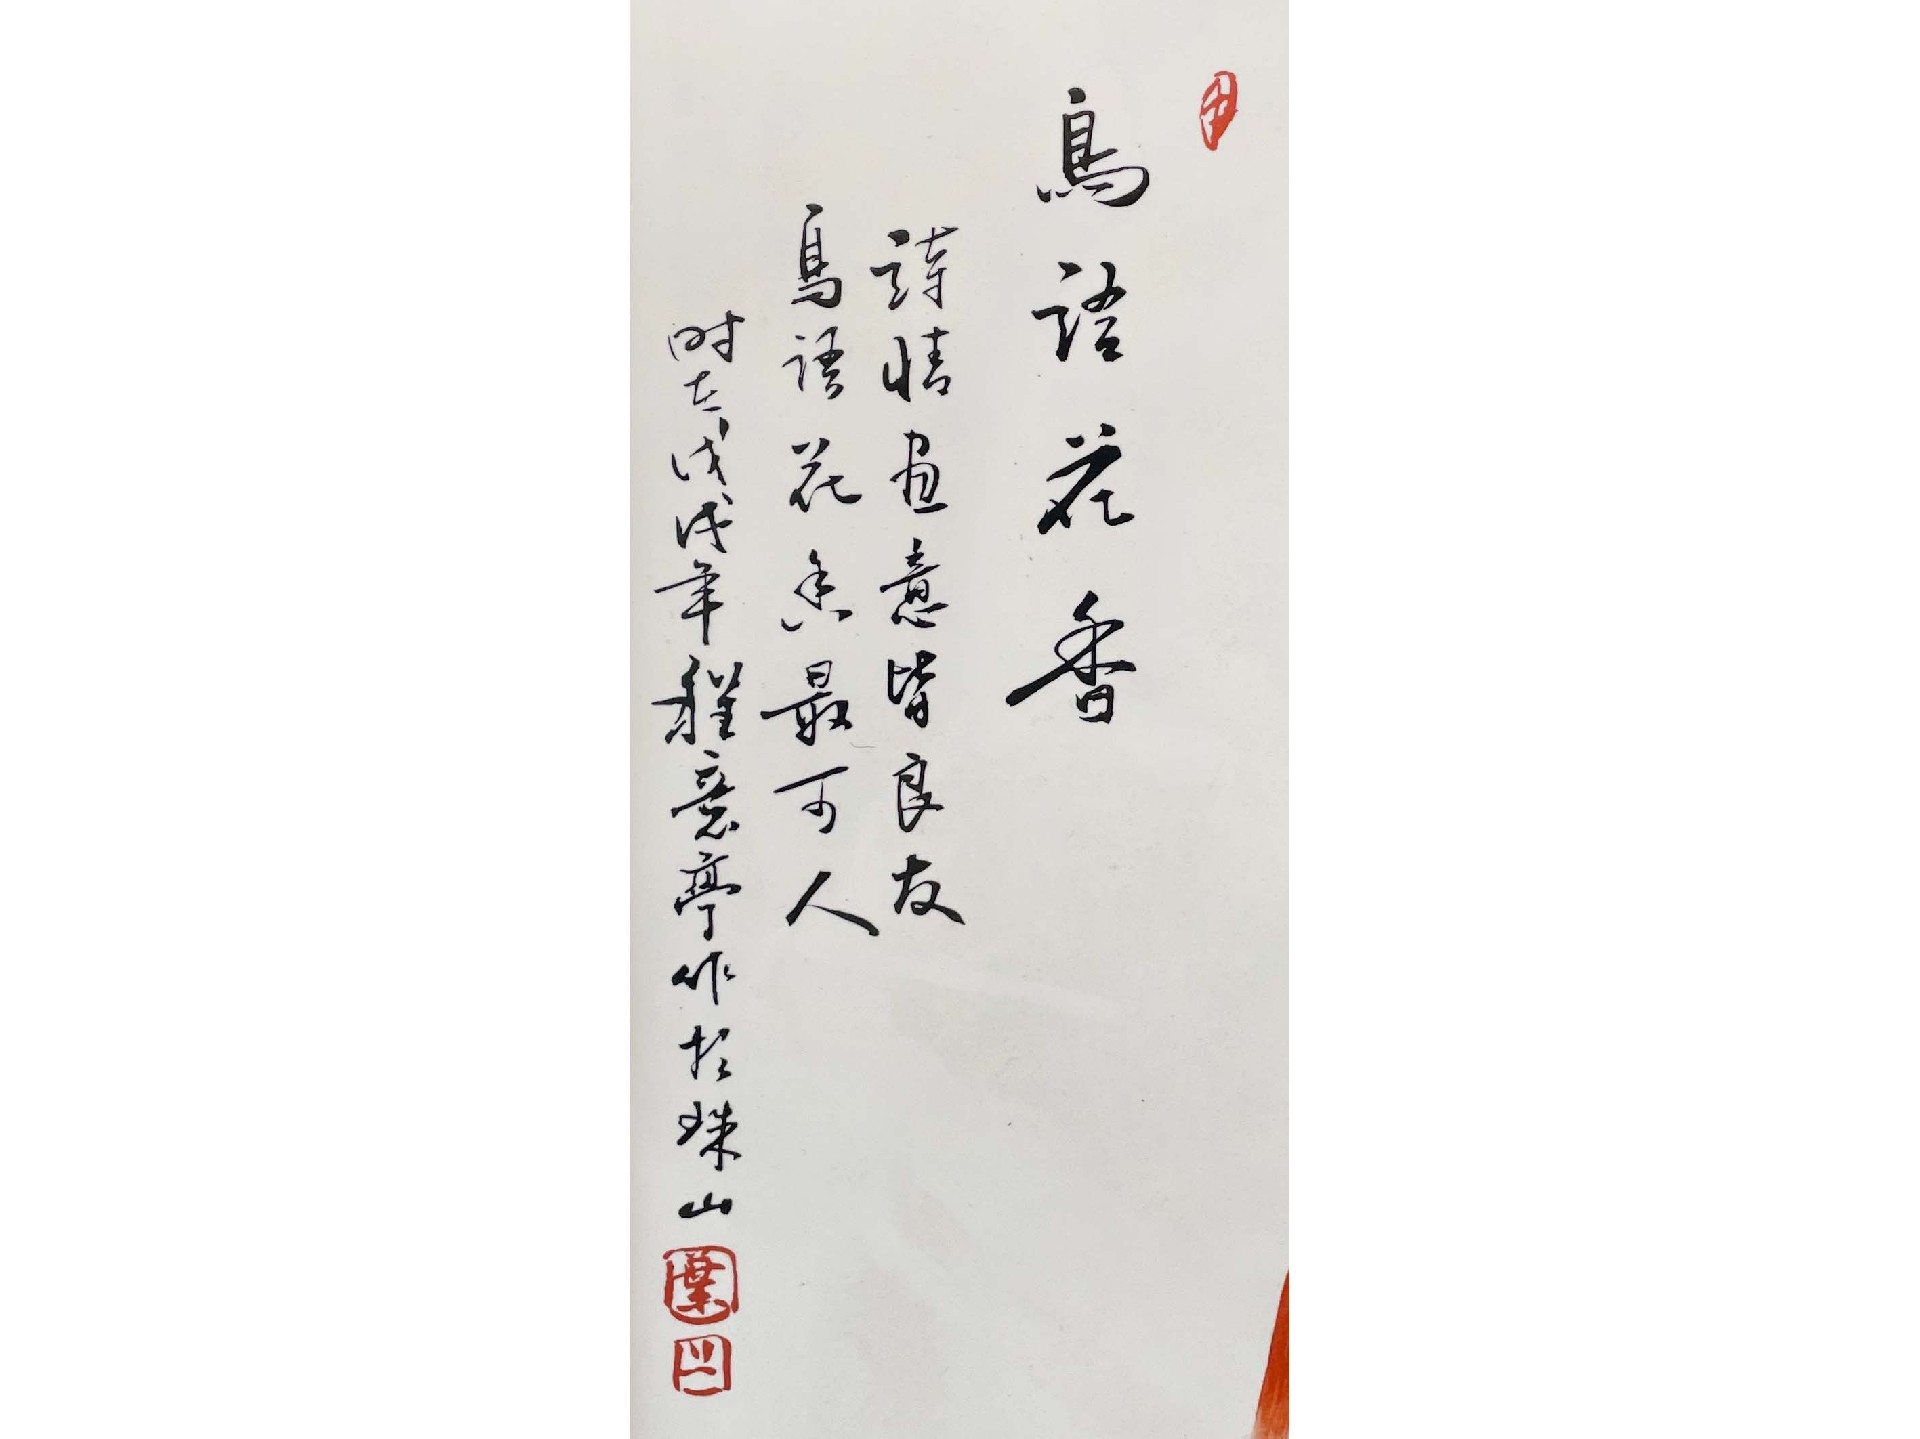 鳥語花香
詩情画意皆良友
鳥語花香最可人
时在戊戌年程意亭作於珠山